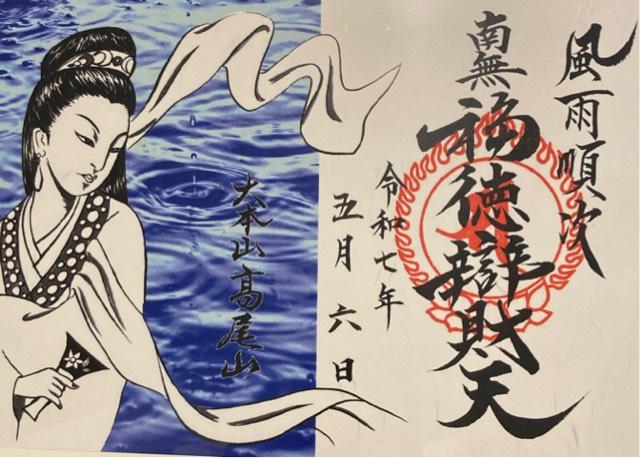 風雨順次
南無
福徳辯財天
令和七年
五月六日
大本山高尾山